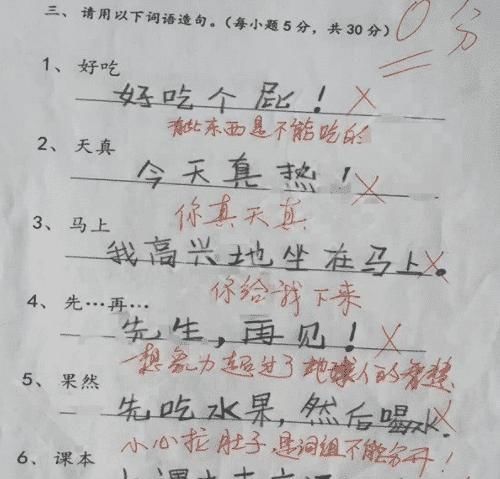 三、请用以下词语造句。（每小题5分，共30分）
0分
1、好吃
好吃个屁！
有些东西是不能吃的
2、天真
今天真热！
你真天真
3、马上
我高兴地坐在马上。
你给我下来
4、先…再…
先生，再见！
想象力超过了地球人的智慧
5、果然
先吃水果，然后喝水.
小心拉肚子，是词组不能分开！
6、课本
上课